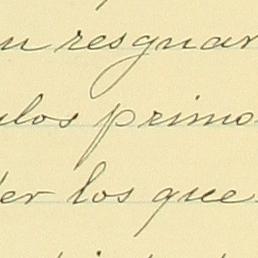 n resguar
ulos primo
der los que